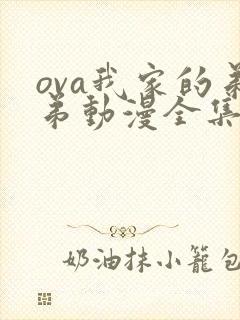 ova我家的弟
弟動漫全集
奶油抹小籠包